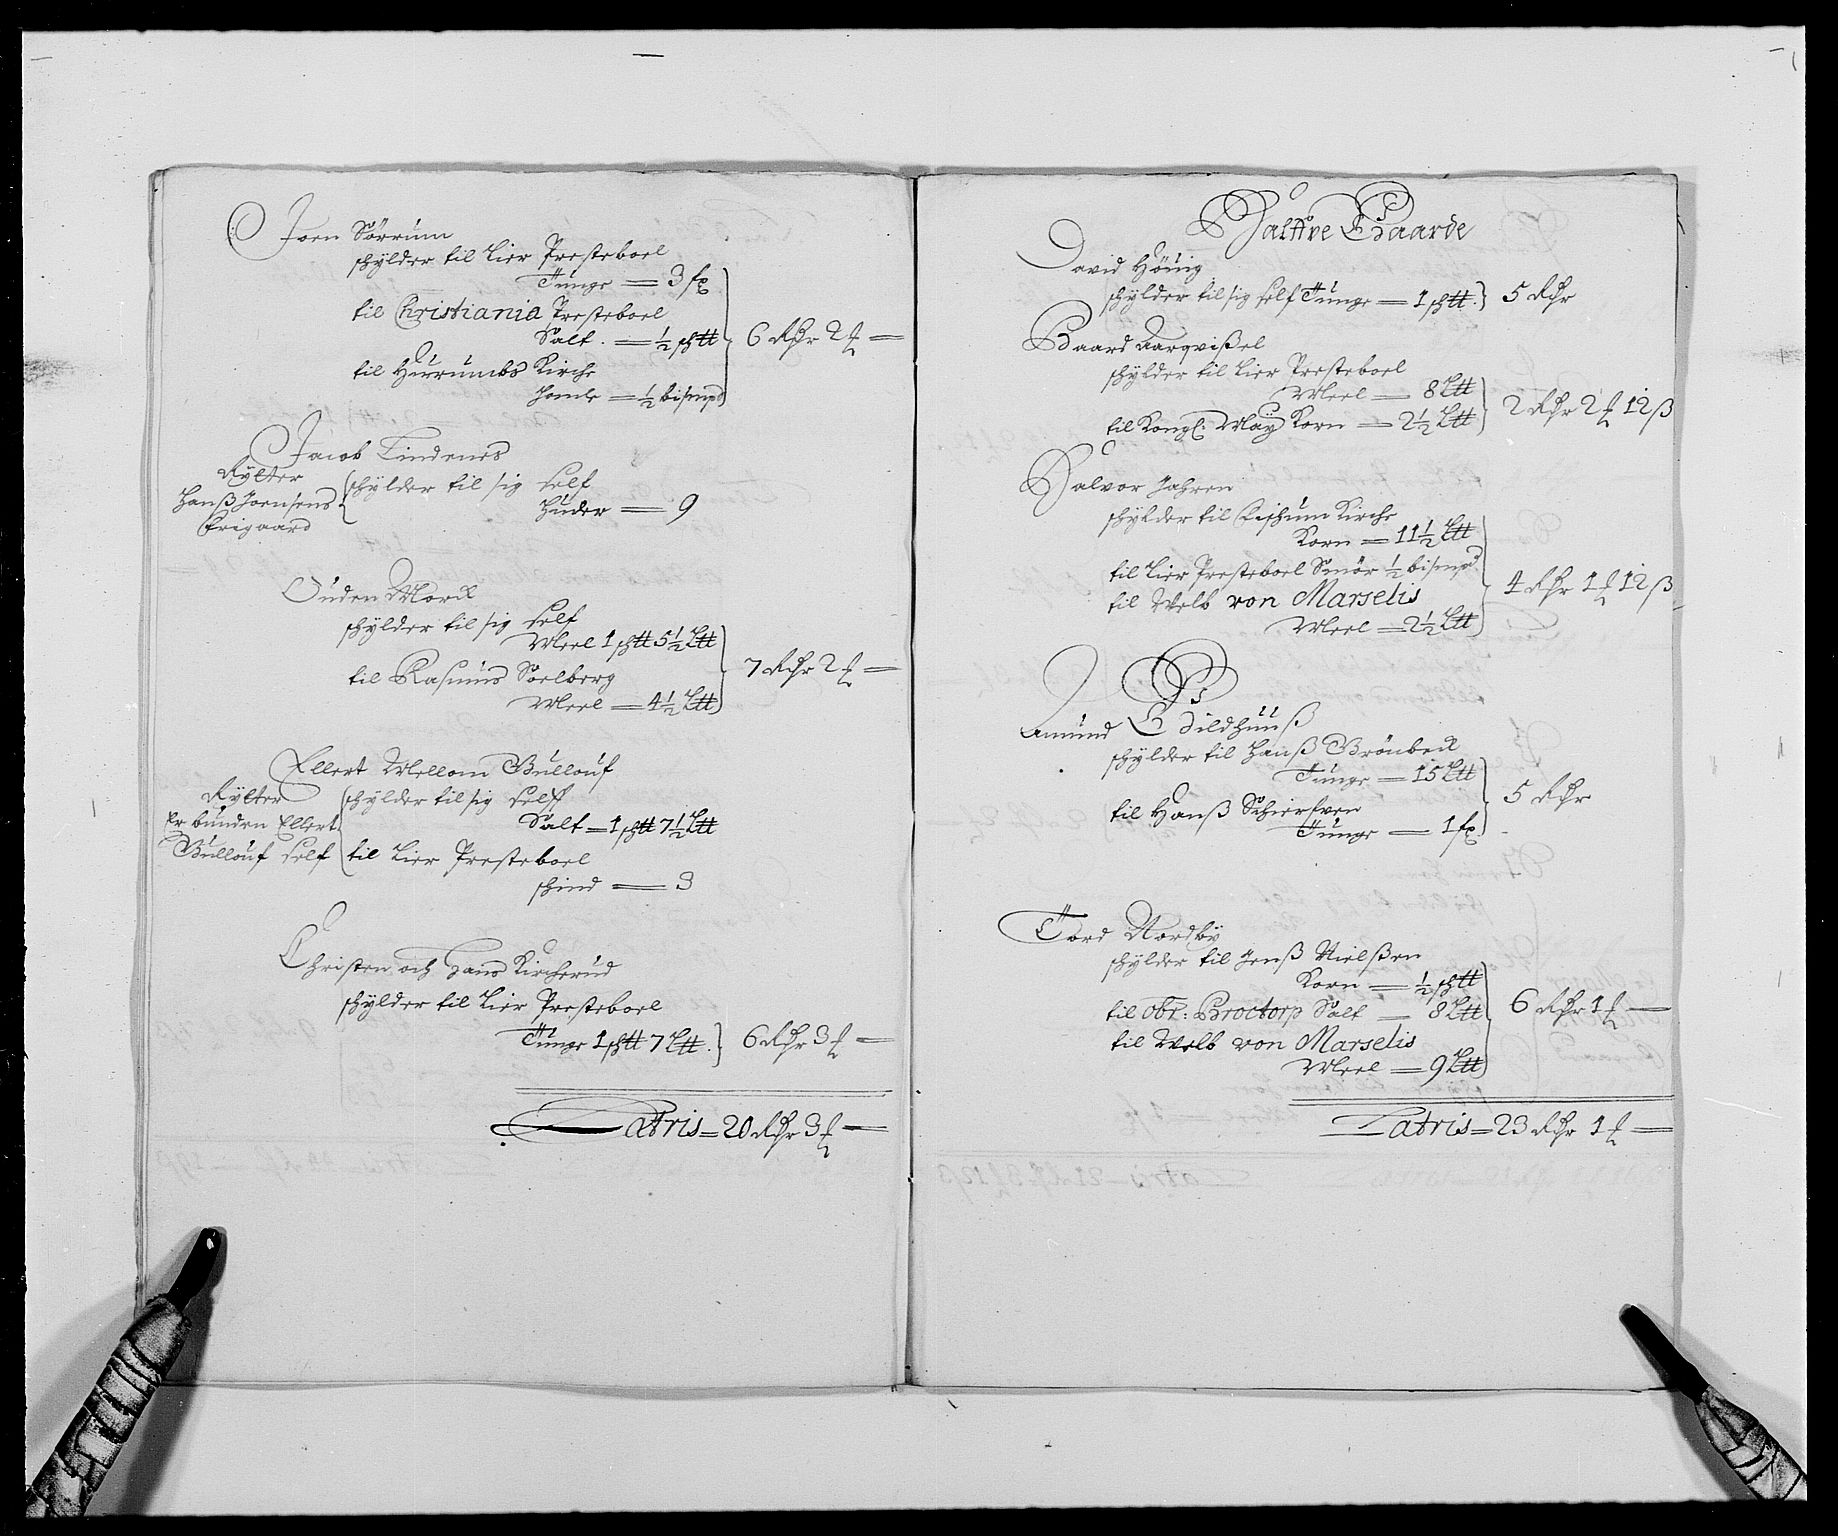 Joen Sørrum
schylder til Lier Presteboel
Tunge = 3 fz
til Christiania Presteboel
Salt. = ½ sch℔
til Hurrumbs Kirche
Homle = ½ bismpd
6 Rdr 2 ₰ =
Jacob Lindenes
Rÿtter
Hanß Joensens
Frigaard
schylder til sig self
Huder = 9
Ouden Morck
schylder til sig self
Meel 1 sch℔ 5½ L℔
til Rasmus Soelberg
Meel = 4½ L℔
7 Rdr 2 ₰ =
Ellert Mellom Bullouf
Rÿtter
Er bunden Ellert
Bullouf self
schylder til sig self
Salt = 1 sch℔ 7½ L℔
til Lier Presteboel
schind = 3
Christen och Hans Kircherud
schylder til Lier Presteboel
Tunge 1 sch℔ 7 L℔.
6 Rdr 3 ₰ =
Latris = 20 Rdr 3 ₰ =
Halffve Gaarde
David Hönig
schylder til sig self Tunge = 1 sch℔.
5 Rdr
Baard Aarqvißel
schylder til Lier Presteboel
Meel = 8 L℔
til Kongl: Maÿ Korn = 2½ L℔
2 Rdr 2 ₰ 12 ß
Halvor Jahren
schylder til Fischum Kirche
Korn = 11½ L℔
til Lier Presteboel Smör ½ bismpd
til Welb von Marselis
Meel = 2½ L℔
4 Rdr 1 ₰ 12 ß
Amund Gildhuuß
schylder til Hanß Brönbeck
Tunge = 15 L℔
til Hanß Schierfven
Tunge = 1 fz
5 Rdr
Tord Nordbÿ
schylder til Jenß Nielßen
Korn = ½ sch℔
til Obr: Broctorp Salt = 8 L℔
til Welb von Marselis
Meel = 9 L℔
6 Rdr 1 ₰ =
Latris = 23 Rdr 1 ₰ =